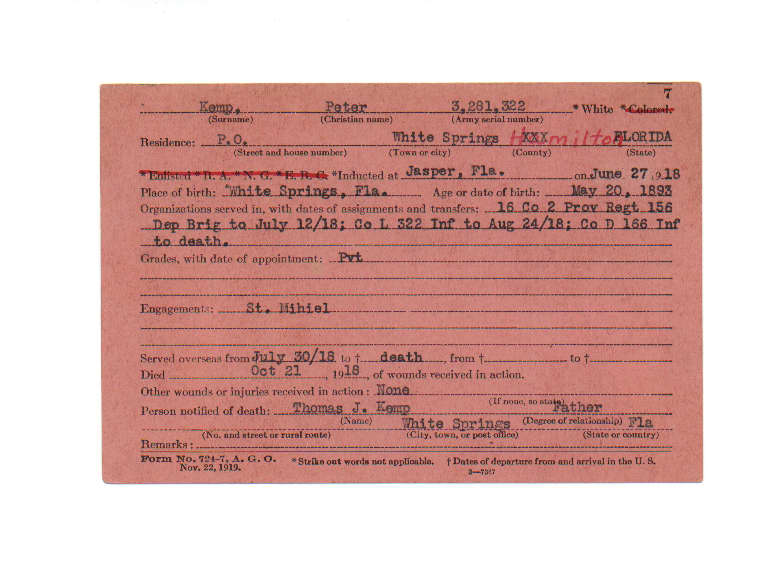 7
Kemp, Peter 3,281,322 * White * Colored.
(Surname) (Christian name) (Army serial number)
Residence: P.O. White Springs XXX Hamilton FLORIDA
(Street and house number) (Town or city) (County) (State)
*Enlisted *R. A. *N. G. *E. R. C. *Inducted at Jasper, Fla. on June 27, 1918
Place of birth: White Springs, Fla. Age or date of birth: May 20, 1893
Organizations served in, with dates of assignments and transfers: 16 Co 2 Prov Regt 156
Dep Brig to July 12/18; Co L 322 Inf to Aug 24/18; Co D 166 Inf
to death.
Grades, with date of appointment: Pvt
Engagements: St. Mihiel
Served overseas from July 30/18 to † death, from † to †
Died Oct 21, 1918, of wounds received in action.
Other wounds or injuries received in action: None
(If none, so state)
Person notified of death: Thomas J. Kemp Father
(Name) (Degree of relationship)
White Springs Fla
(No. and street or rural route) (City, town, or post office) (State or country)
Remarks:
Form No. 724-7, A. G. O. *Strike out words not applicable. † Dates of departure from and arrival in the U. S.
Nov. 22, 1919. 3—7387